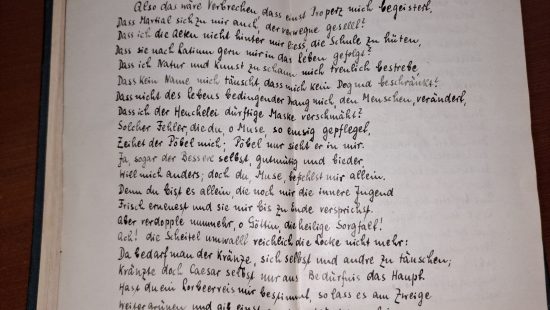 Also das wäre Verbrechen dass einst Properz mich begeistert,
Dass Martial sich zu mir auch, der verwegne gesellt?
Dass ich die Alten nicht hinter mir liess, die Schule zu hüten,
Dass sie nach Latium gern mir in das Leben gefolgt?
Dass ich Natur und Kunst zu schaun mich treulich bestrebe,
Dass kein Name mich täuscht, dass mich kein Dogma beschränkt?
Dass nicht des Lebens bedingender Drang mich, den Menschen, verändert,
Dass ich der Heuchelei dürftige Maske verschmäht?
Solcher Fehler, die du, o Muse, so emsig gepfleget,
Zeihet der Pöbel mich; Pöbel nur sieht er in mir.
Ja, sogar der Bessere selbst, gutmütig und bieder,
Will mich anders; doch du, Muse, befiehlst mir allein.
Denn du bist es allein, die noch mir die innere Jugend
Frisch erneuest und sie mir bis zu Ende versprichst.
Aber verdopple nunmehr, o Göttin, die heilige Sorgfalt!
Ach! die Scheitel umwallt reichlich die Locke nicht mehr:
Da bedarf man der Kränze, sich selbst und andre zu täuschen;
Kränzte doch Caesar selbst nur aus Bedürfnis das Haupt.
Hast du ein Lorbeerreis mir bestimmt, so lass es am Zweige
Weitergrünen und gib einst